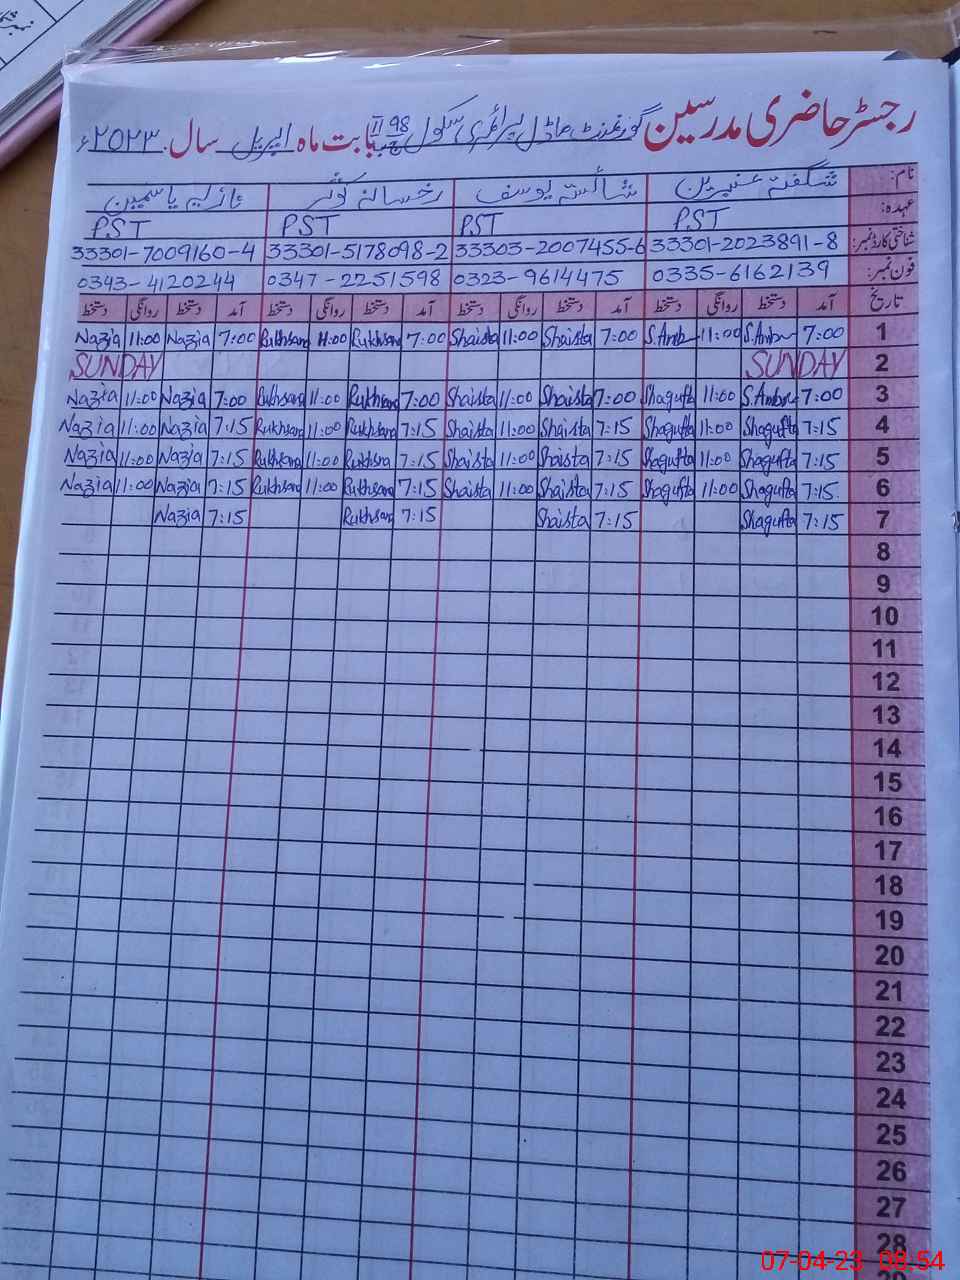 رجسٹر حاضری مدرسین گورنمنٹ ماڈل پرائمری سکول 98 ج ب II بابت ماہ اپریل سال ۲۰۲۳ء
نام: شگفتہ عنبرین شائستہ یوسف رخسانہ کوثر نازیہ یاسمین
عہدہ: P.ST P.ST P.ST P.ST
شناختی کارڈ نمبر: 33301-2023891-8 33303-2007455-6 33301-5178098-2 33301-7009160-4
فون نمبر: 0335-6162139 0323-9614475 0347-2251598 0343-4120244
تاریخ آمد دستخط روانگی دستخط آمد دستخط روانگی دستخط آمد دستخط روانگی دستخط آمد دستخط روانگی دستخط
1 7:00 S.Ambr 11:00 S.Ambr 7:00 Shaista 11:00 Shaista 7:00 Rukhsana 11:00 Rukhsana 7:00 Nazia 11:00 Nazia
2 SUNDAY SUNDAY
3 7:00 S.Ambr 11:00 Shagufta 7:00 Shaista 11:00 Shaista 7:00 Rukhsana 11:00 Rukhsana 7:00 Nazia 11:00 Nazia
4 7:15 Shagufta 11:00 Shagufta 7:15 Shaista 11:00 Shaista 7:15 Rukhsana 11:00 Rukhsana 7:15 Nazia 11:00 Nazia
5 7:15 Shagufta 11:00 Shagufta 7:15 Shaista 11:00 Shaista 7:15 Rukhsna 11:00 Rukhsana 7:15 Nazia 11:00 Nazia
6 7:15 Shagufta 11:00 Shagufta 7:15 Shaista 11:00 Shaista 7:15 Rukhsana 11:00 Rukhsana 7:15 Nazia 11:00 Nazia
7 7:15 Shagufta 7:15 Shaista 7:15 Rukhsana 7:15 Nazia
8
9
10
11
12
13
14
15
16
17
18
19
20
21
22
23
24
25
26
27
28
07-04-23 08:54